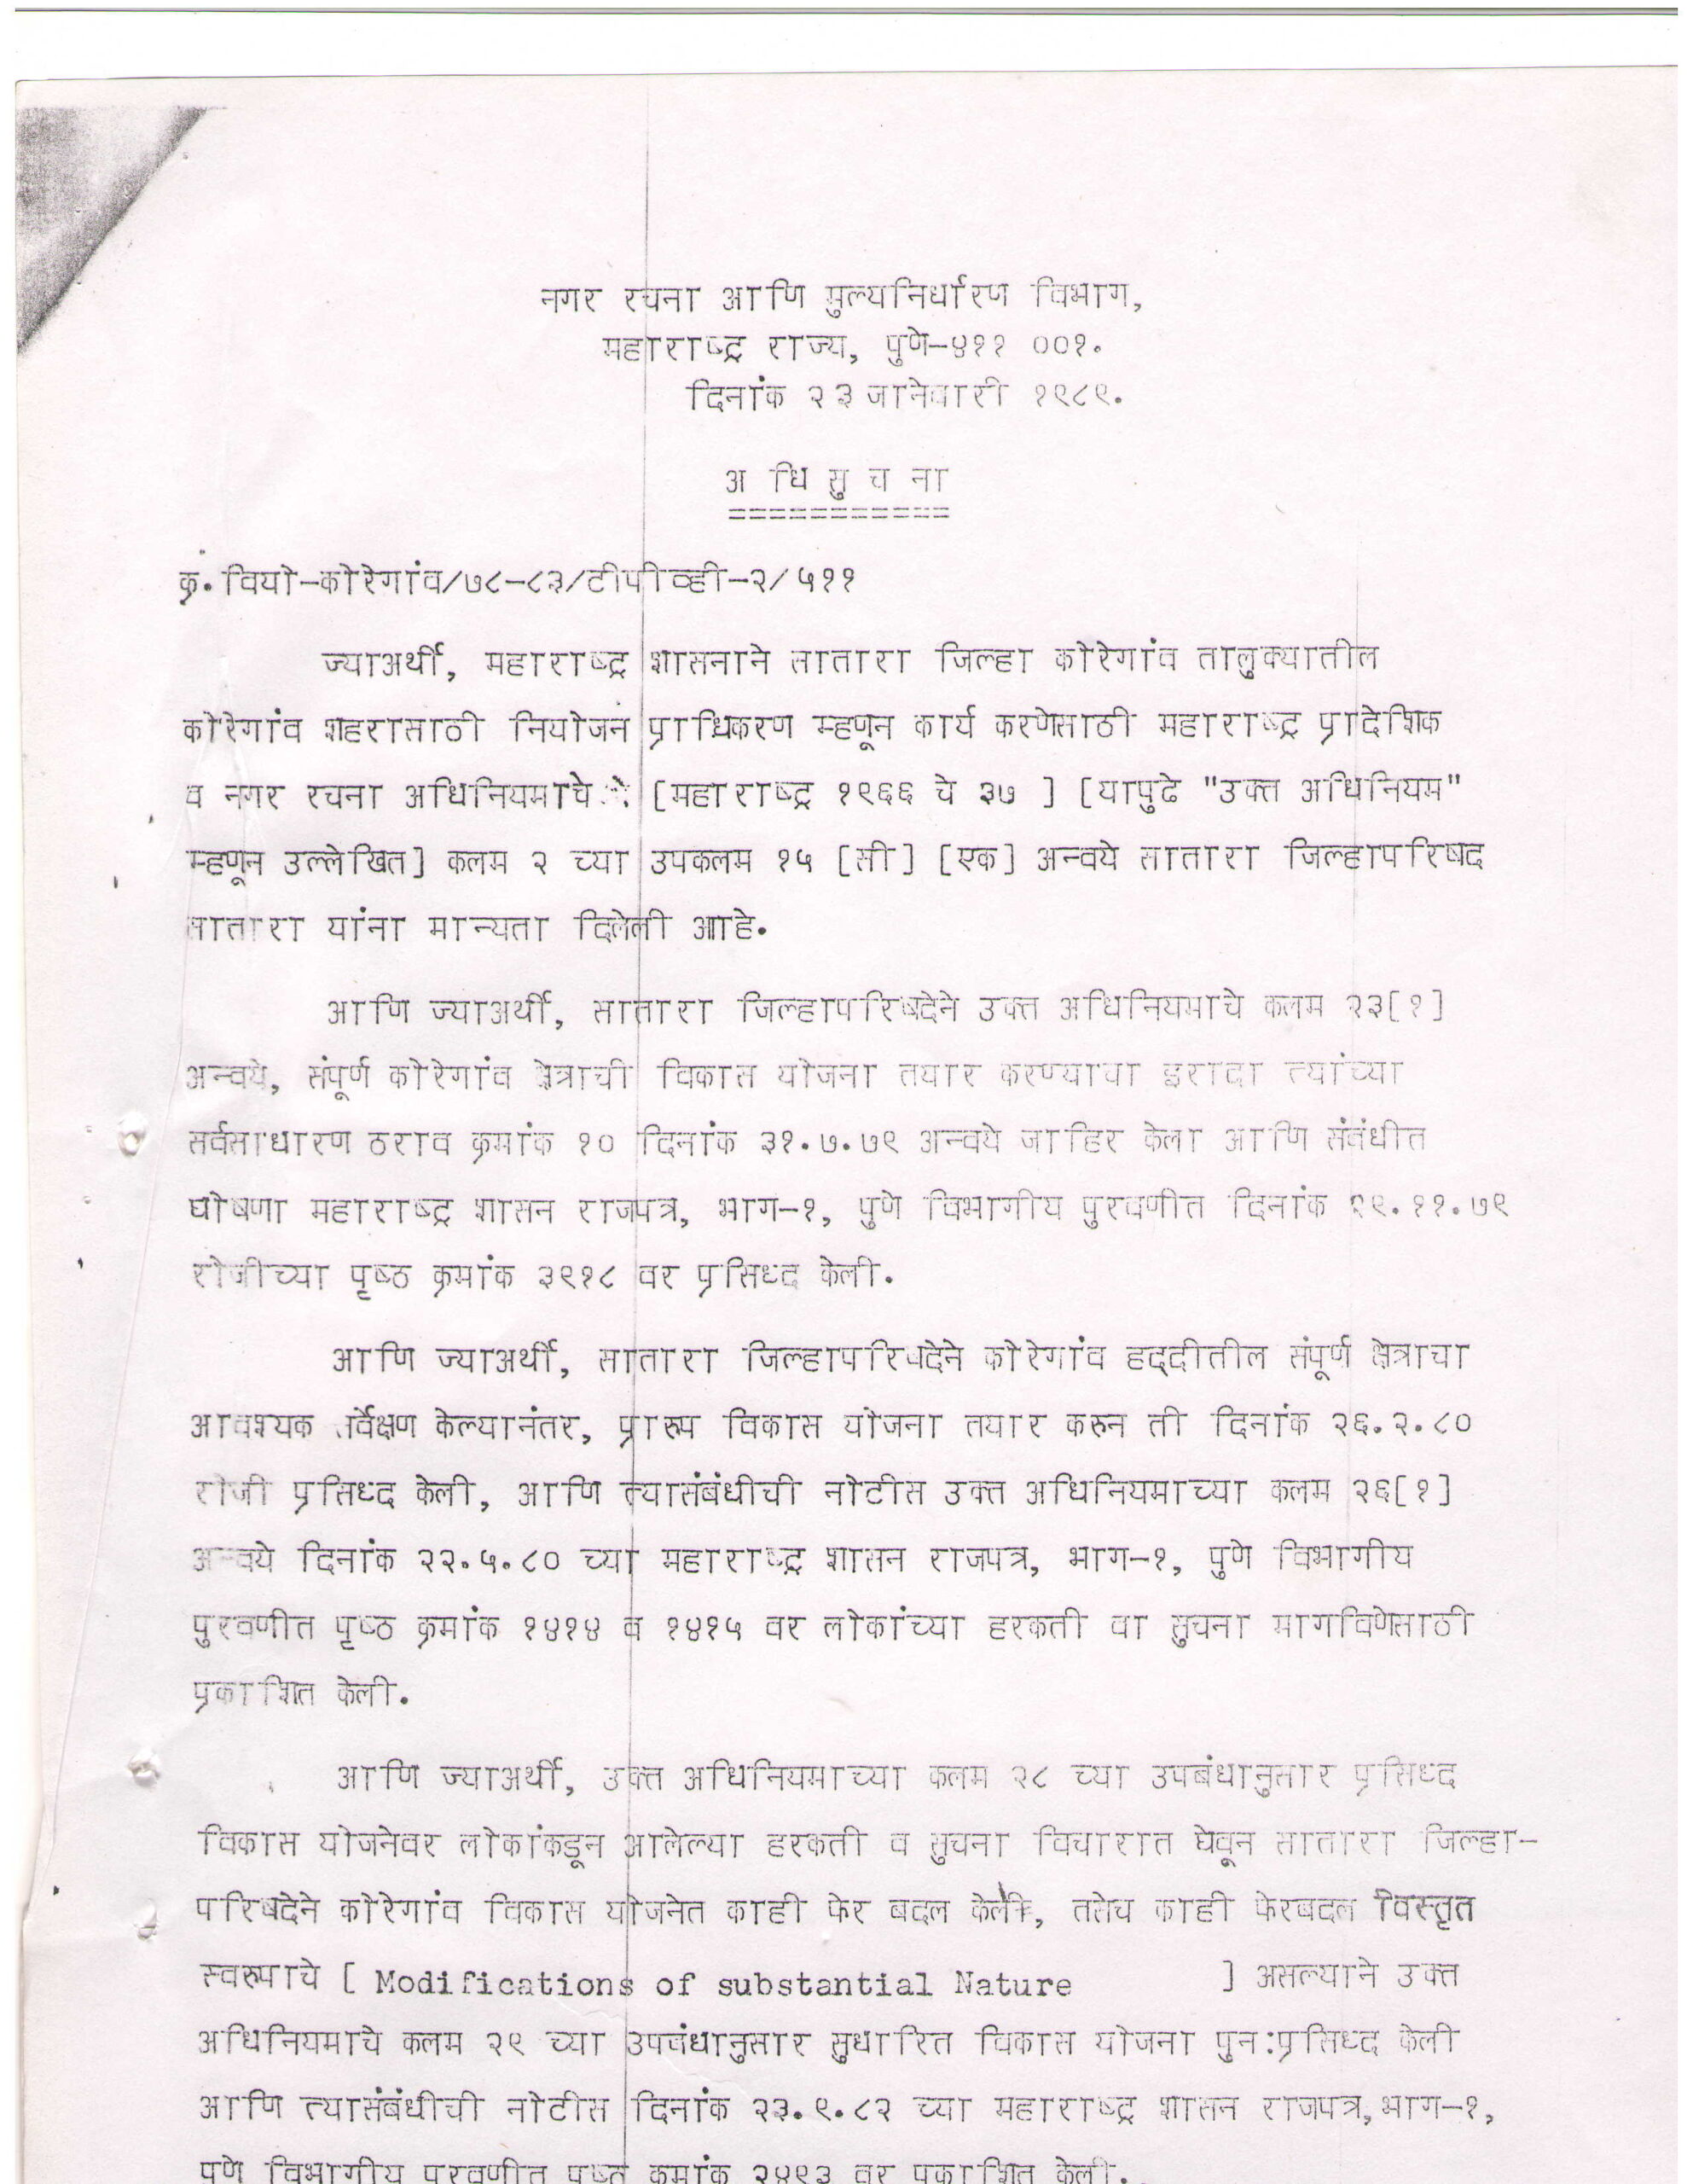 नगर रचना आणि मुल्यनिर्धारण विभाग,
महाराष्ट्र राज्य, पुणे-४११ ००१.
दिनांक २३ जानेवारी १९८९.
अ धि सु च ना
===========
क्र. वियो-कोरेगांव/७८-८३/टीपीव्ही-२/५११
ज्याअर्थी, महाराष्ट्र शासनाने सातारा जिल्हा कोरेगांव तालुक्यातील
कोरेगांव शहरासाठी नियोजन प्राधिकरण म्हणून कार्य करणेसाठी महाराष्ट्र प्रादेशिक
व नगर रचना अधिनियमाचे [महाराष्ट्र १९६६ चे ३७ ] [यापुढे "उक्त अधिनियम"
म्हणून उल्लेखित] कलम २ च्या उपकलम १५ [सी] [एक] अन्वये सातारा जिल्हापरिषद
सातारा यांना मान्यता दिलेली आहे.
आणि ज्याअर्थी, सातारा जिल्हापरिषदेने उक्त अधिनियमाचे कलम २३[१]
अन्वये, संपूर्ण कोरेगांव क्षेत्राची विकास योजना तयार करण्याचा इरादा त्यांच्या
सर्वसाधारण ठराव क्रमांक १० दिनांक ३१.७.७९ अन्वये जाहिर केला आणि संबंधीत
घोषणा महाराष्ट्र शासन राजपत्र, भाग-१, पुणे विभागीय पुरवणीत दिनांक २९.११.७९
रोजीच्या पृष्ठ क्रमांक ३९१८ वर प्रसिध्द केली.
आणि ज्याअर्थी, सातारा जिल्हापरिषदेने कोरेगांव हद्दीतील संपूर्ण क्षेत्राचा
आवश्यक सर्वेक्षण केल्यानंतर, प्रारुप विकास योजना तयार करुन ती दिनांक २६.२.८०
रोजी प्रसिध्द केली, आणि त्यासंबंधीची नोटीस उक्त अधिनियमाच्या कलम २६[१]
अन्वये दिनांक २२.५.८० च्या महाराष्ट्र शासन राजपत्र, भाग-१, पुणे विभागीय
पुरवणीत पृष्ठ क्रमांक १४१४ व १४१५ वर लोकांच्या हरकती वा सुचना मागविणेसाठी
प्रकाशित केली.
आणि ज्याअर्थी, उक्त अधिनियमाच्या कलम २८ च्या उपबंधानुसार प्रसिध्द
विकास योजनेवर लोकांकडून आलेल्या हरकती व सुचना विचारात घेवून सातारा जिल्हा-
परिषदेने कोरेगांव विकास योजनेत काही फेर बदल केले, तसेच काही फेरबदल विस्तृत
स्वरुपाचे [ Modifications of substantial Nature ] असल्याने उक्त
अधिनियमाचे कलम २९ च्या उपबंधानुसार सुधारित विकास योजना पुन:प्रसिध्द केली
आणि त्यासंबंधीची नोटीस दिनांक २३.९.८२ च्या महाराष्ट्र शासन राजपत्र, भाग-१,
पुणे विभागीय पुरवणीत पृष्ठ क्रमांक २४९३ वर प्रकाशित केली.